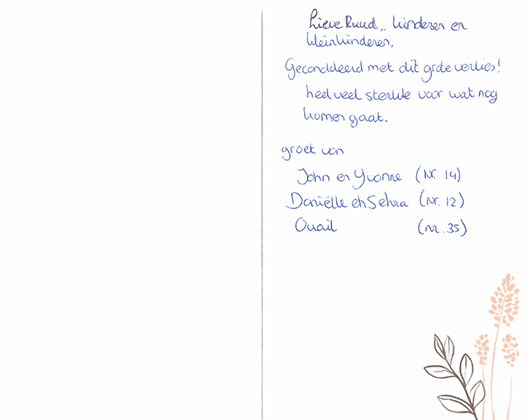 Lieve Ruud,, kinderen en
kleinkinderen,
Gecondoleerd met dit grote verlies!
heel veel sterkte voor wat nog
komen gaat.
groet van
John en Yvonne (Nr. 14)
Daniëlle en Sehra (Nr. 12)
Ouail (nr. 35)